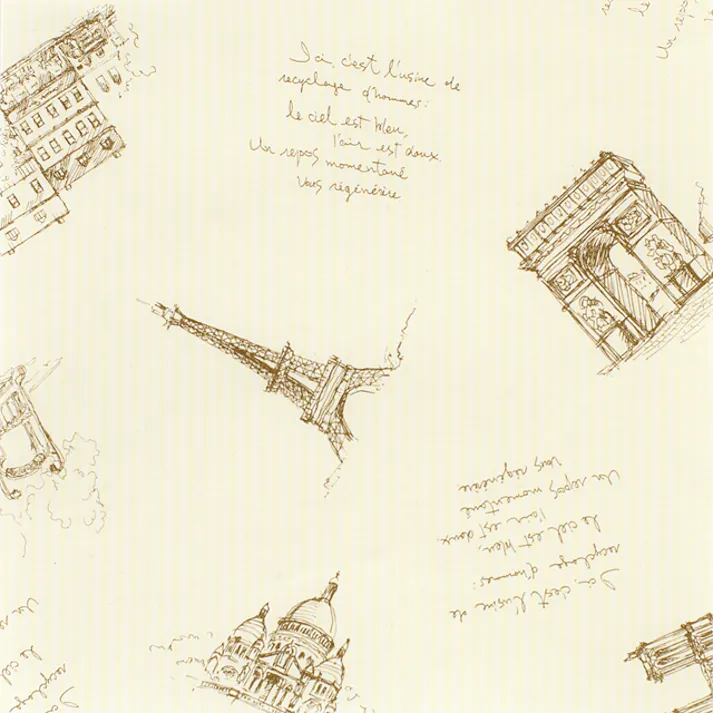 Ici, c'est l'usine de
recyclage d'hommes:
le ciel est bleu,
l'air est doux.
Un repos momentané
vous régénère
Un repos
Ici, c'est l'usine de
recyclage d'hommes:
le ciel est bleu,
l'air est doux.
Un repos momentané
vous régénère
Un re
le ciel
recyclage
Ici